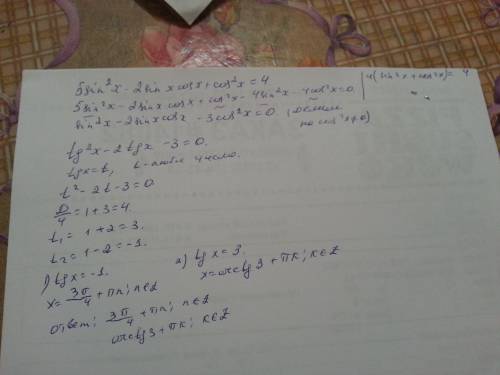 5sin²x - 2sinx cosx + cos²x = 4
4(sin²x + cos²x) = 4
5sin²x - 2sinx cosx + cos²x - 4sin²x - 4cos²x = 0
sin²x - 2sinx cosx - 3cos²x = 0 (делим
на cos²x ≠ 0)
tg²x - 2tgx - 3 = 0.
tgx = t, t - любое число.
t² - 2t - 3 = 0
D/4 = 1 + 3 = 4.
t₁ = 1 + 2 = 3.
t₂ = 1 - 2 = -1.
1) tgx = -1.
x = 3π/4 + πn; n∈Z
2) tgx = 3.
x = arctg3 + πk; k∈Z
ответ: 3π/4 + πn; n∈Z
arctg3 + πk; k∈Z